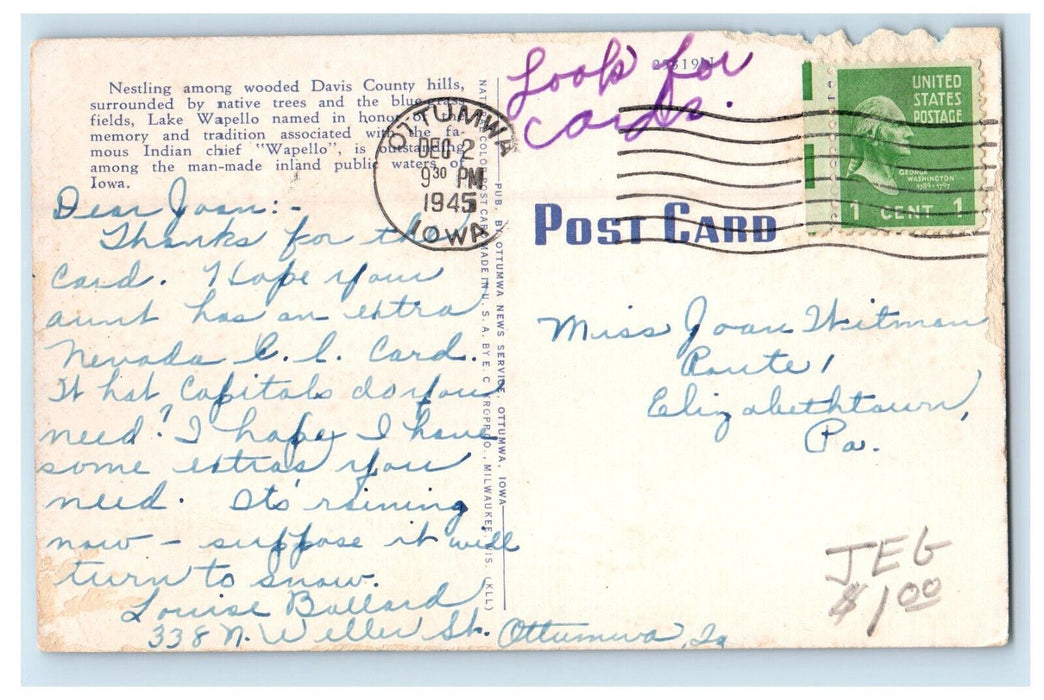 Nestling among wooded Davis County hills,
surrounded by native trees and the blue-grass
fields, Lake Wapello named in honor of the
memory and tradition associated with the fa-
mous Indian chief "Wapello", is outstanding
among the man-made inland public waters of
Iowa.
Look for
cards.
OTTUMWA
DEC 2
9 30 PM
1945
IOWA
UNITED
STATES
POSTAGE
GEORGE
WASHINGTON
1789-1797
1 CENT 1
POST CARD
Dear Joan:-
Thanks for the
card. Hope your
aunt has an extra
Nevada C. C. Card.
What Capitals do you
need? I hope I have
some extras you
need. Its' raining
now - suppose it will
turn to snow.
Louise Ballard
338 N. Weller St. Ottumwa, Ia
PUB. BY OTTUMWA NEWS SERVICE, OTTUMWA, IOWA
POST CARD MADE IN U. S. A. BY E. C. KROPP CO., MILWAUKEE, WIS. (KLL)
Miss Joan Witman
Route 1
Elizabethtown,
Pa.
JEG
$1.00